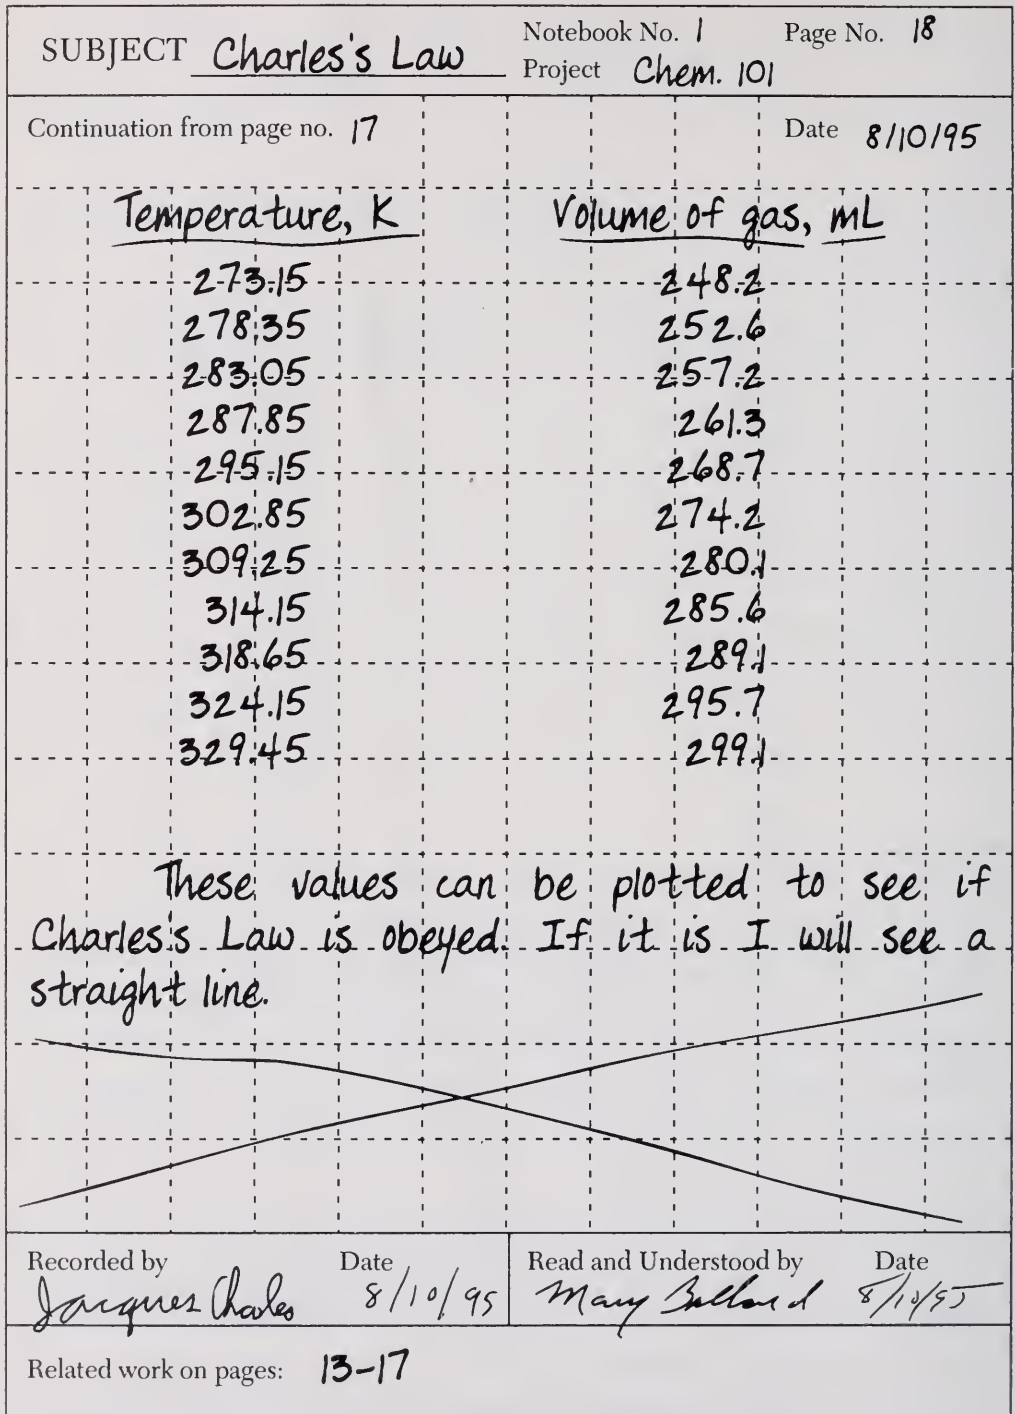 SUBJECT Charles's Law
Notebook No. 1 Page No. 18
Project Chem. 101
Continuation from page no. 17 Date 8/10/95
Temperature, K Volume of gas, mL
273.15 248.2
278.35 252.6
283.05 257.2
287.85 261.3
295.15 268.7
302.85 274.2
309.25 280.1
314.15 285.6
318.65 289.1
324.15 295.7
329.45 299.1
These values can be plotted to see if
Charles's Law is obeyed. If it is I will see a
straight line.
Recorded by Date Read and Understood by Date
Jacques Charles 8/10/95 Mary 8/10/95
Related work on pages: 13-17